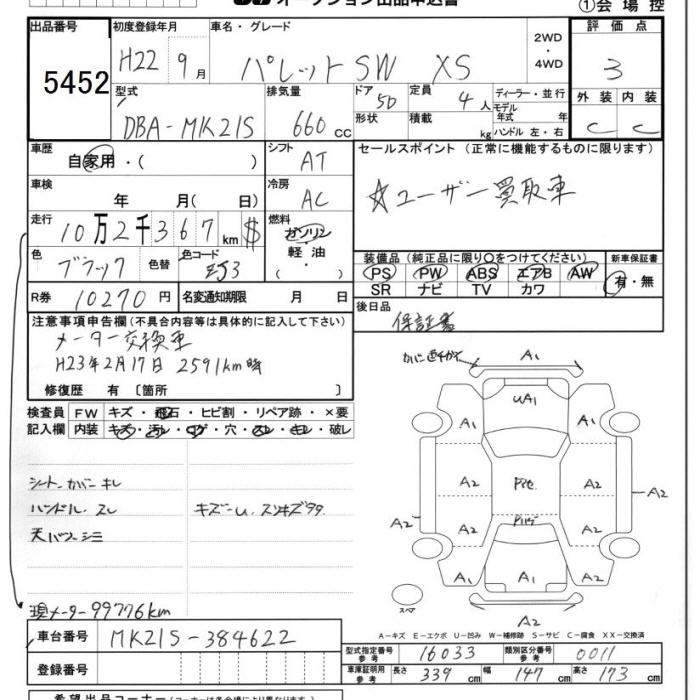 オークション出品申込書
①会場控
出品番号 初度登録年月 車名・グレード 評価点
5452 H22 9月 パレットSW XS 2WD・4WD 3
型式 排気量 ドア 定員 ディーラー・並行 外装 内装
DBA-MK21S 660cc 5D 4人 モデル年式 年 C C
形状 積載 kg ハンドル 左・右
車歴 シフト セールスポイント（正常に機能するものに限ります）
自家用・( ) AT
☆ユーザー買取車
車検 冷房
年 月( 日) AC
走行 燃料
10万2千367km $ ガソリン・軽油・
色 色替 色コード 装備品（純正品に限り○をつけてください） 新車保証書
ブラック ZJ3 PS PW ABS エアB AW 有・無
SR ナビ TV カワ
R券 名変通知期限 月 日 後日品
10270円 保証書
注意事項申告欄（不具合内容等は具体的に記入して下さい）
メーター交換車
H23年2月17日 2591km時
修復歴 有〔箇所 〕
検査員 FW キズ・飛石・ヒビ割・リペア跡・×要
記入欄 内装 キズ・汚レ・コゲ・穴・スレ・キレ・破レ
シートカバーキレ
ハンドルスレ キズーu.スリキズ
現メーター99776km
A1
uA1
A1 A1
A2 A2 A2
A2 A2 A2
A1 uA1 A1
A2
スペア
A－キズ E－エクボ U－凹み W－補修跡 S－サビ C－腐食 XX－交換済
車台番号 MK21S-384622
型式指定番号 参考 16033 類別区分番号 参考 0011
登録番号
車庫証明用 参考 長さ 339cm 幅 147cm 高さ 173cm
希望出品コーナー